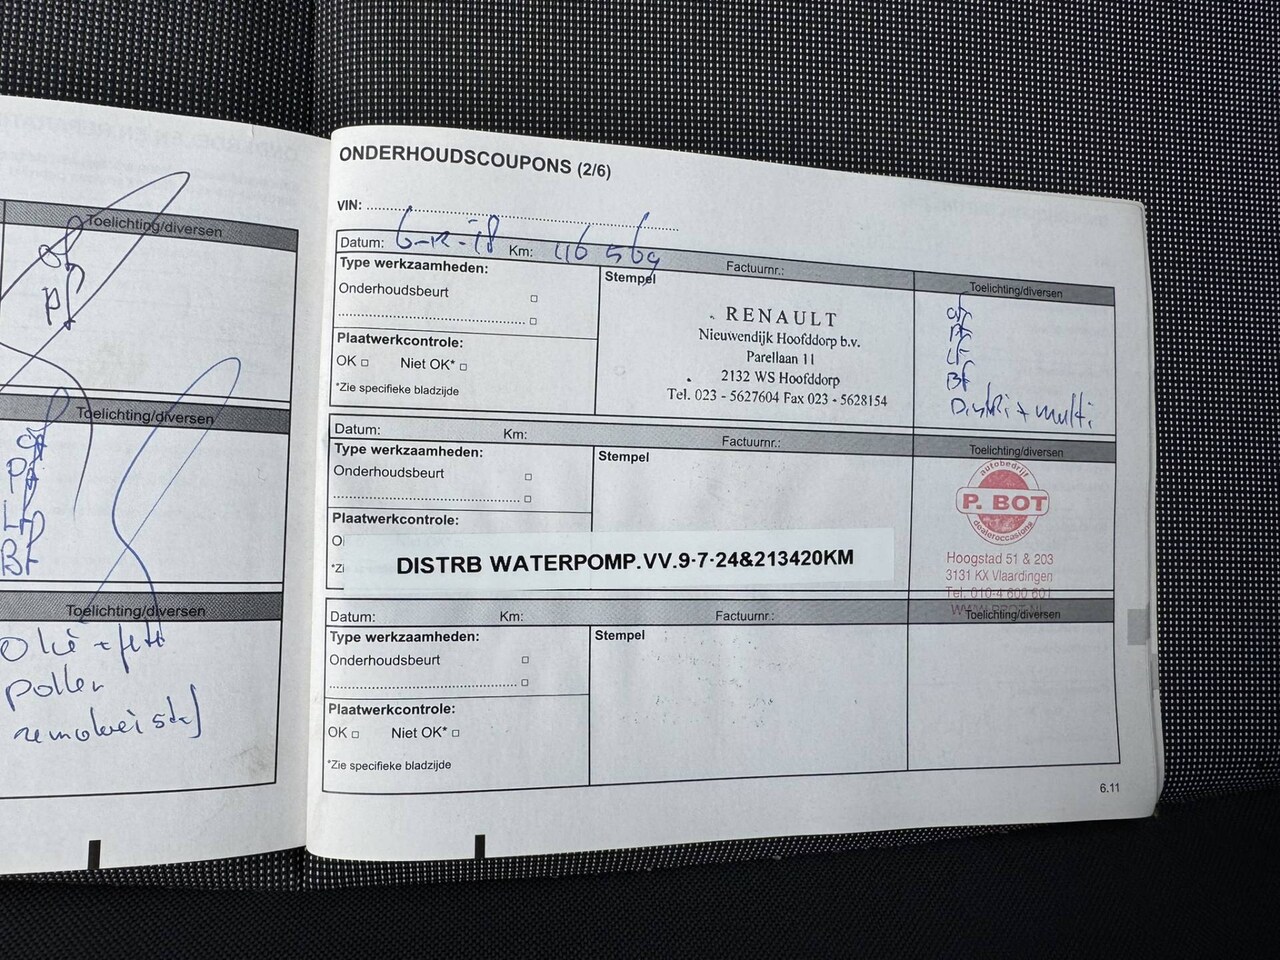 Toelichting/diversen
of
pf
Toelichting/diversen
of
Pf
Lf
Bf
Toelichting/diversen
Olie + filt
pollen
remvloeistof
ONDERHOUDSCOUPONS (2/6)
VIN:
Datum: 6-12-18 Km: 116 569 Factuurnr.:
Type werkzaamheden:
Stempel
Toelichting/diversen
Onderhoudsbeurt
Plaatwerkcontrole:
OK Niet OK*
*Zie specifieke bladzijde
RENAULT
Nieuwendijk Hoofddorp b.v.
Parellaan 11
2132 WS Hoofddorp
Tel. 023 - 5627604 Fax 023 - 5628154
of
Pf
Lf
Bf
Distri + multi
Datum: Km: Factuurnr.:
Type werkzaamheden:
Stempel
Toelichting/diversen
Onderhoudsbeurt
Plaatwerkcontrole:
O
*Zi
DISTRB WATERPOMP.VV.9-7-24&213420KM
autobedrijf
P. BOT
dealeroccasions
Hoogstad 51 & 203
3131 KX Vlaardingen
Tel. 010-4 600 601
Datum: Km: Factuurnr.:
Toelichting/diversen
Type werkzaamheden:
Stempel
Onderhoudsbeurt
Plaatwerkcontrole:
OK Niet OK*
*Zie specifieke bladzijde
6.11